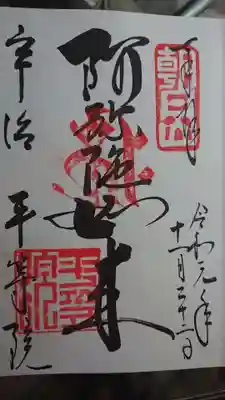 奉拝
朝日山
令和元年
十一月二十二日
阿弥陀如来
宇治 平等院